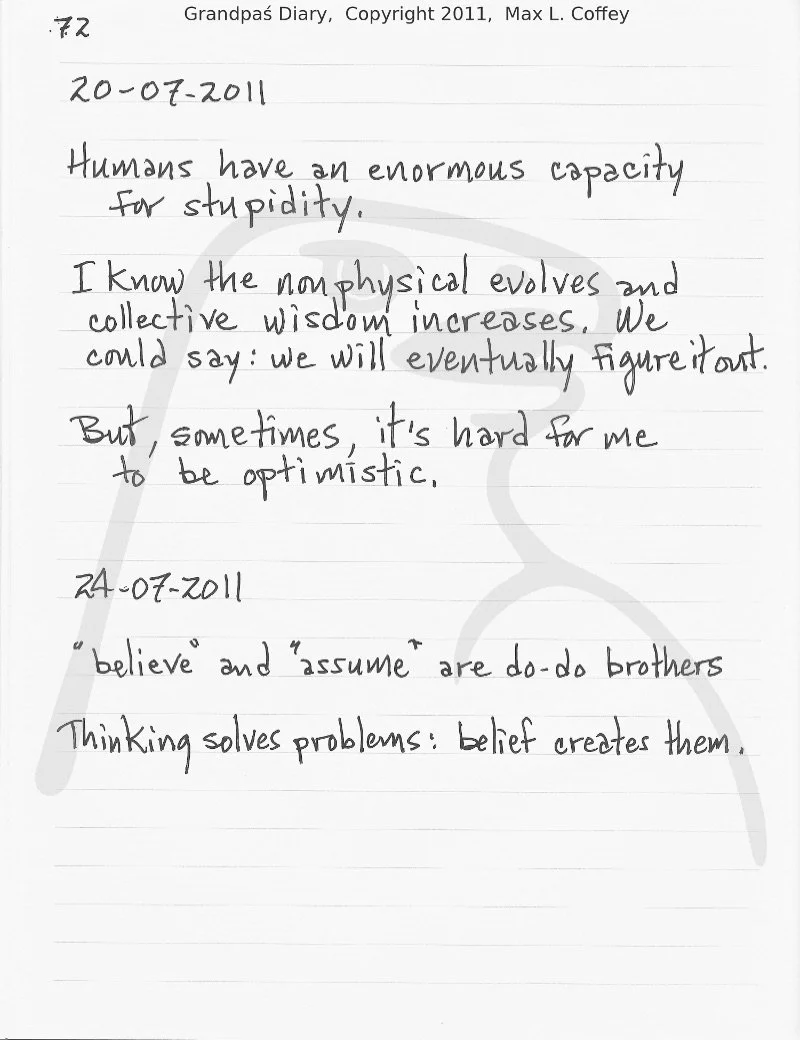 Grandpaś Diary, Copyright 2011, Max L. Coffey
72
20-07-2011
Humans have an enormous capacity
for stupidity.
I know the nonphysical evolves and
collective wisdom increases. We
could say: we will eventually figure it out.
But, sometimes, it's hard for me
to be optimistic.
24-07-2011
"believe" and "assume" are do-do brothers
Thinking solves problems: belief creates them.